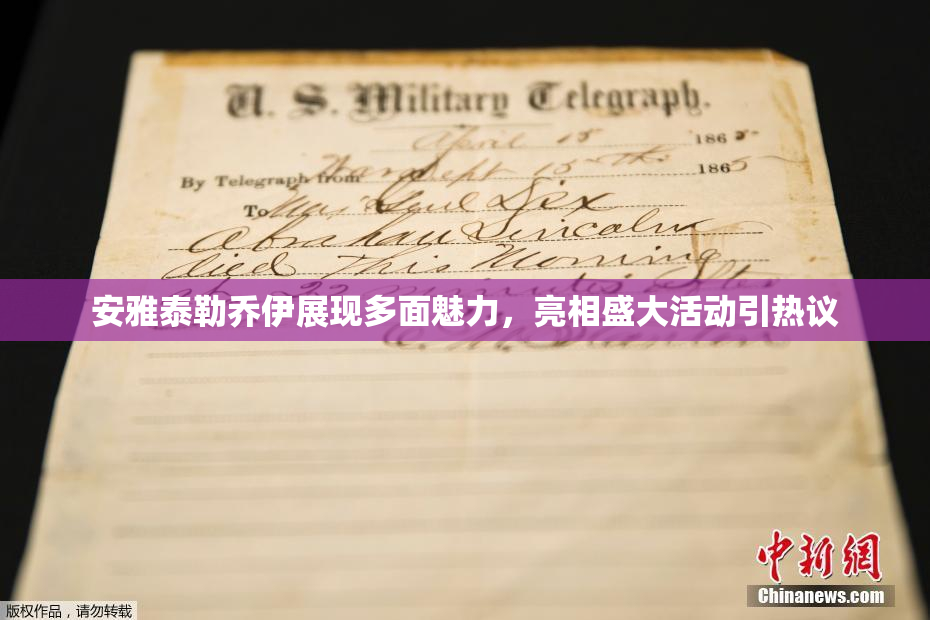 U. S. Military Telegraph.
April 15 1865
By Telegraph from Wash Dept 15th 1865
To Maj Genl Dix
Abraham Lincoln
died This Morning
at 22 minutes after
安雅泰勒乔伊展现多面魅力，亮相盛大活动引热议
中新网
Chinanews.com
版权作品，请勿转载